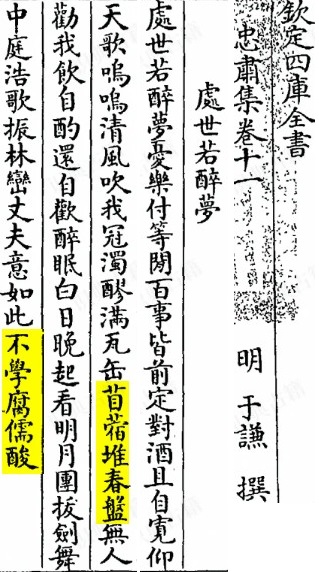 欽定四庫全書
忠肅集卷十一
明 于謙 撰
處世若醉夢
處世若醉夢憂樂付等閒百事皆前定對酒且自寛仰
天歌嗚嗚清風吹我冠濁醪滿瓦缶苜蓿堆春盤無人
勸我飲自酌還自歡醉眠白日晚起看明月團拔劍舞
中庭浩歌振林巒丈夫意如此不學腐儒酸